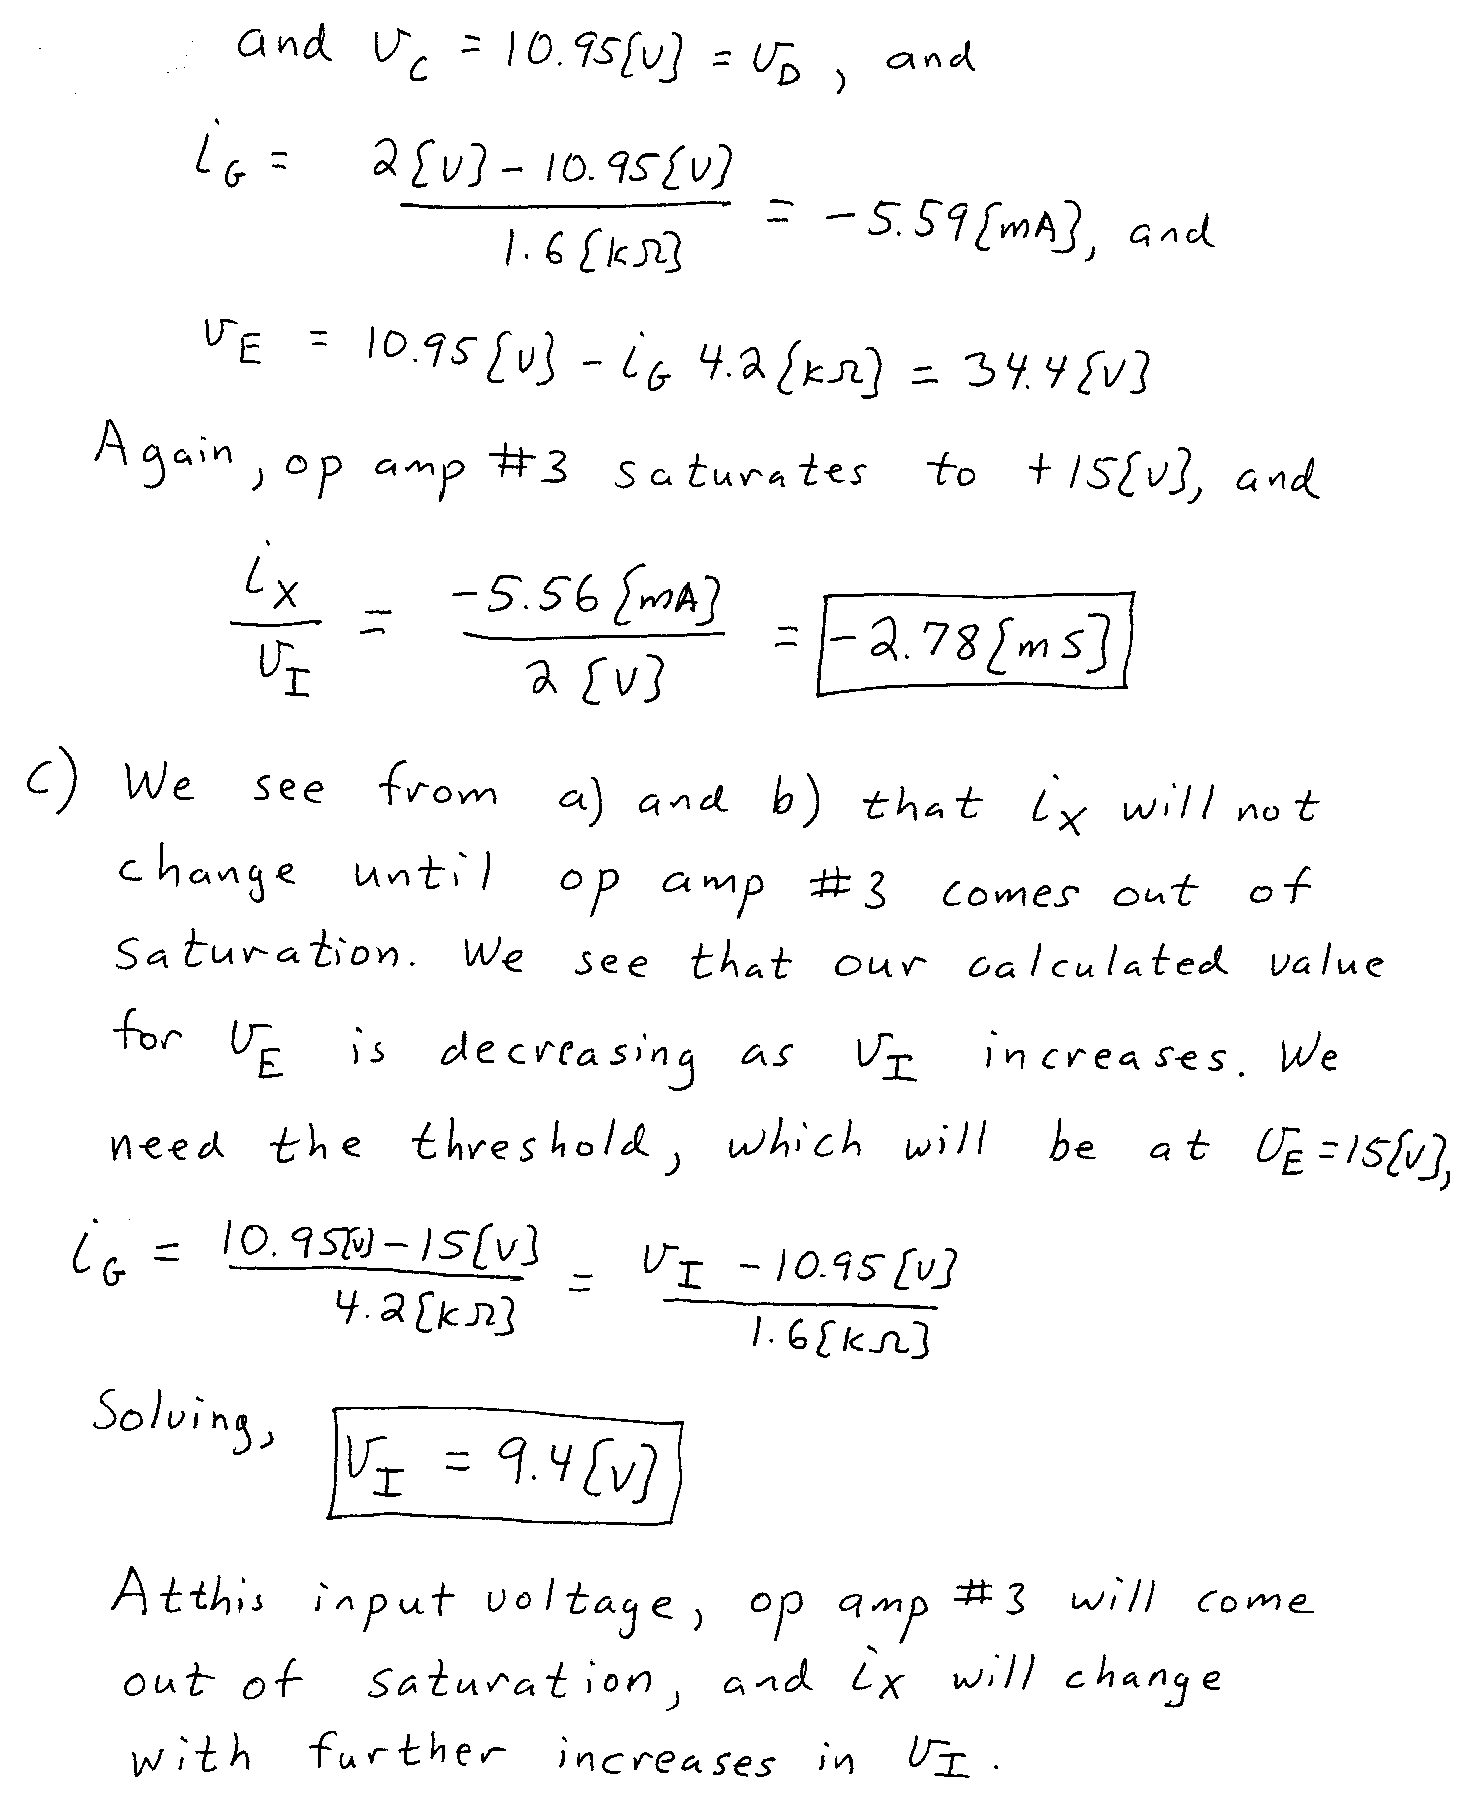 and v_C = 10.95[V] = v_D, and
i_G = (2[V] - 10.95[V]) / 1.6[kΩ] = -5.59[mA], and
v_E = 10.95[V] - i_G 4.2[kΩ] = 34.4[V]
Again, op amp #3 saturates to +15[V], and
i_X / v_I = -5.56[mA] / 2[V] = -2.78[mS]
c) We see from a) and b) that i_X will not
change until op amp #3 comes out of
saturation. We see that our calculated value
for v_E is decreasing as v_I increases. We
need the threshold, which will be at v_E = 15[V],
i_G = (10.95[V] - 15[V]) / 4.2[kΩ] = (v_I - 10.95[V]) / 1.6[kΩ]
Solving, v_I = 9.4[V]
At this input voltage, op amp #3 will come
out of saturation, and i_X will change
with further increases in v_I.